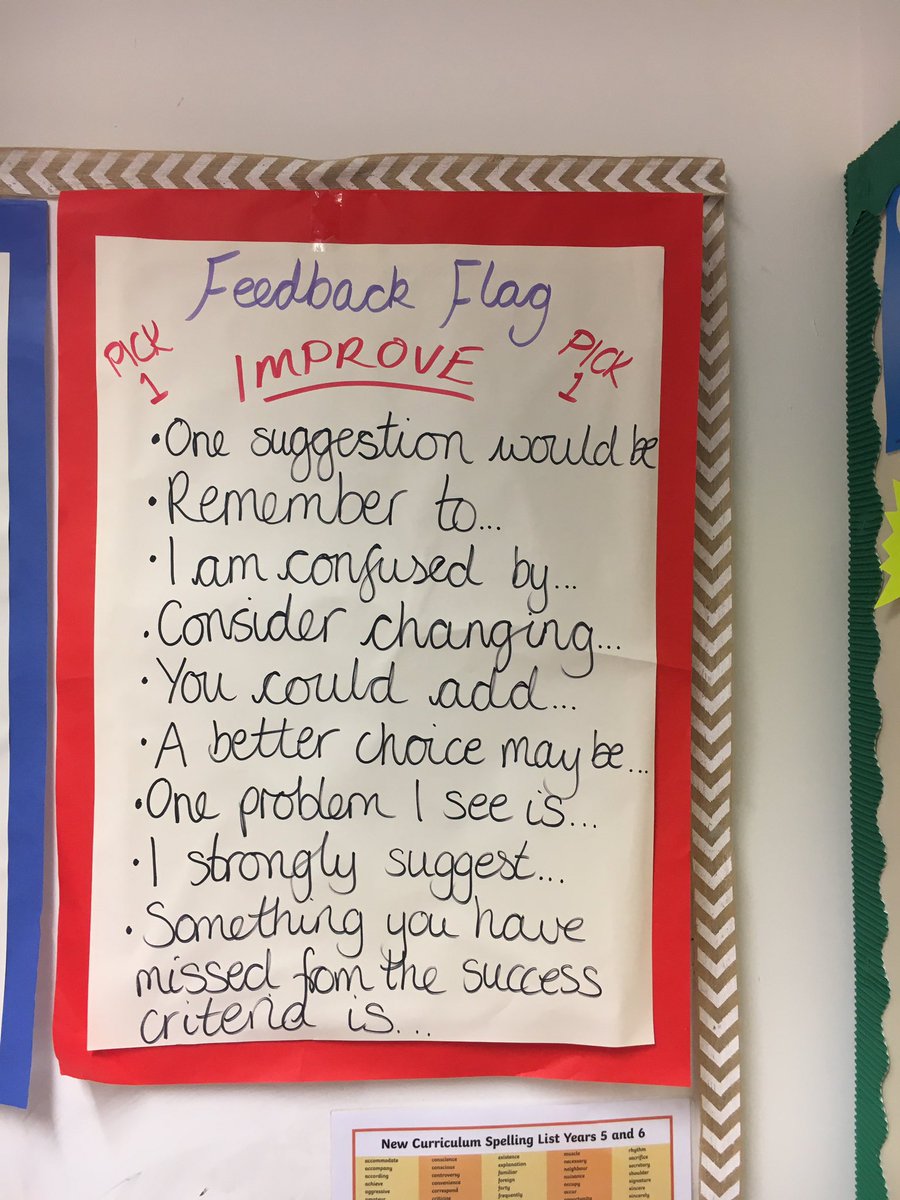 Feedback Flag
PICK
1
IMPROVE
PICK
1
•One suggestion would be
•Remember to...
•I am confused by...
•Consider changing...
•You could add...
•A better choice may be...
•One problem I see is...
•I strongly suggest...
•Something you have
missed from the success
criteria is...
New Curriculum Spelling List Years 5 and 6
accommodate conscience existence muscle rhythm
accompany conscious explanation necessary sacrifice
according controversy familiar neighbour secretary
achieve convenience foreign nuisance shoulder
aggressive correspond forty occupy signature
criticise frequently occur sincere
sincerely